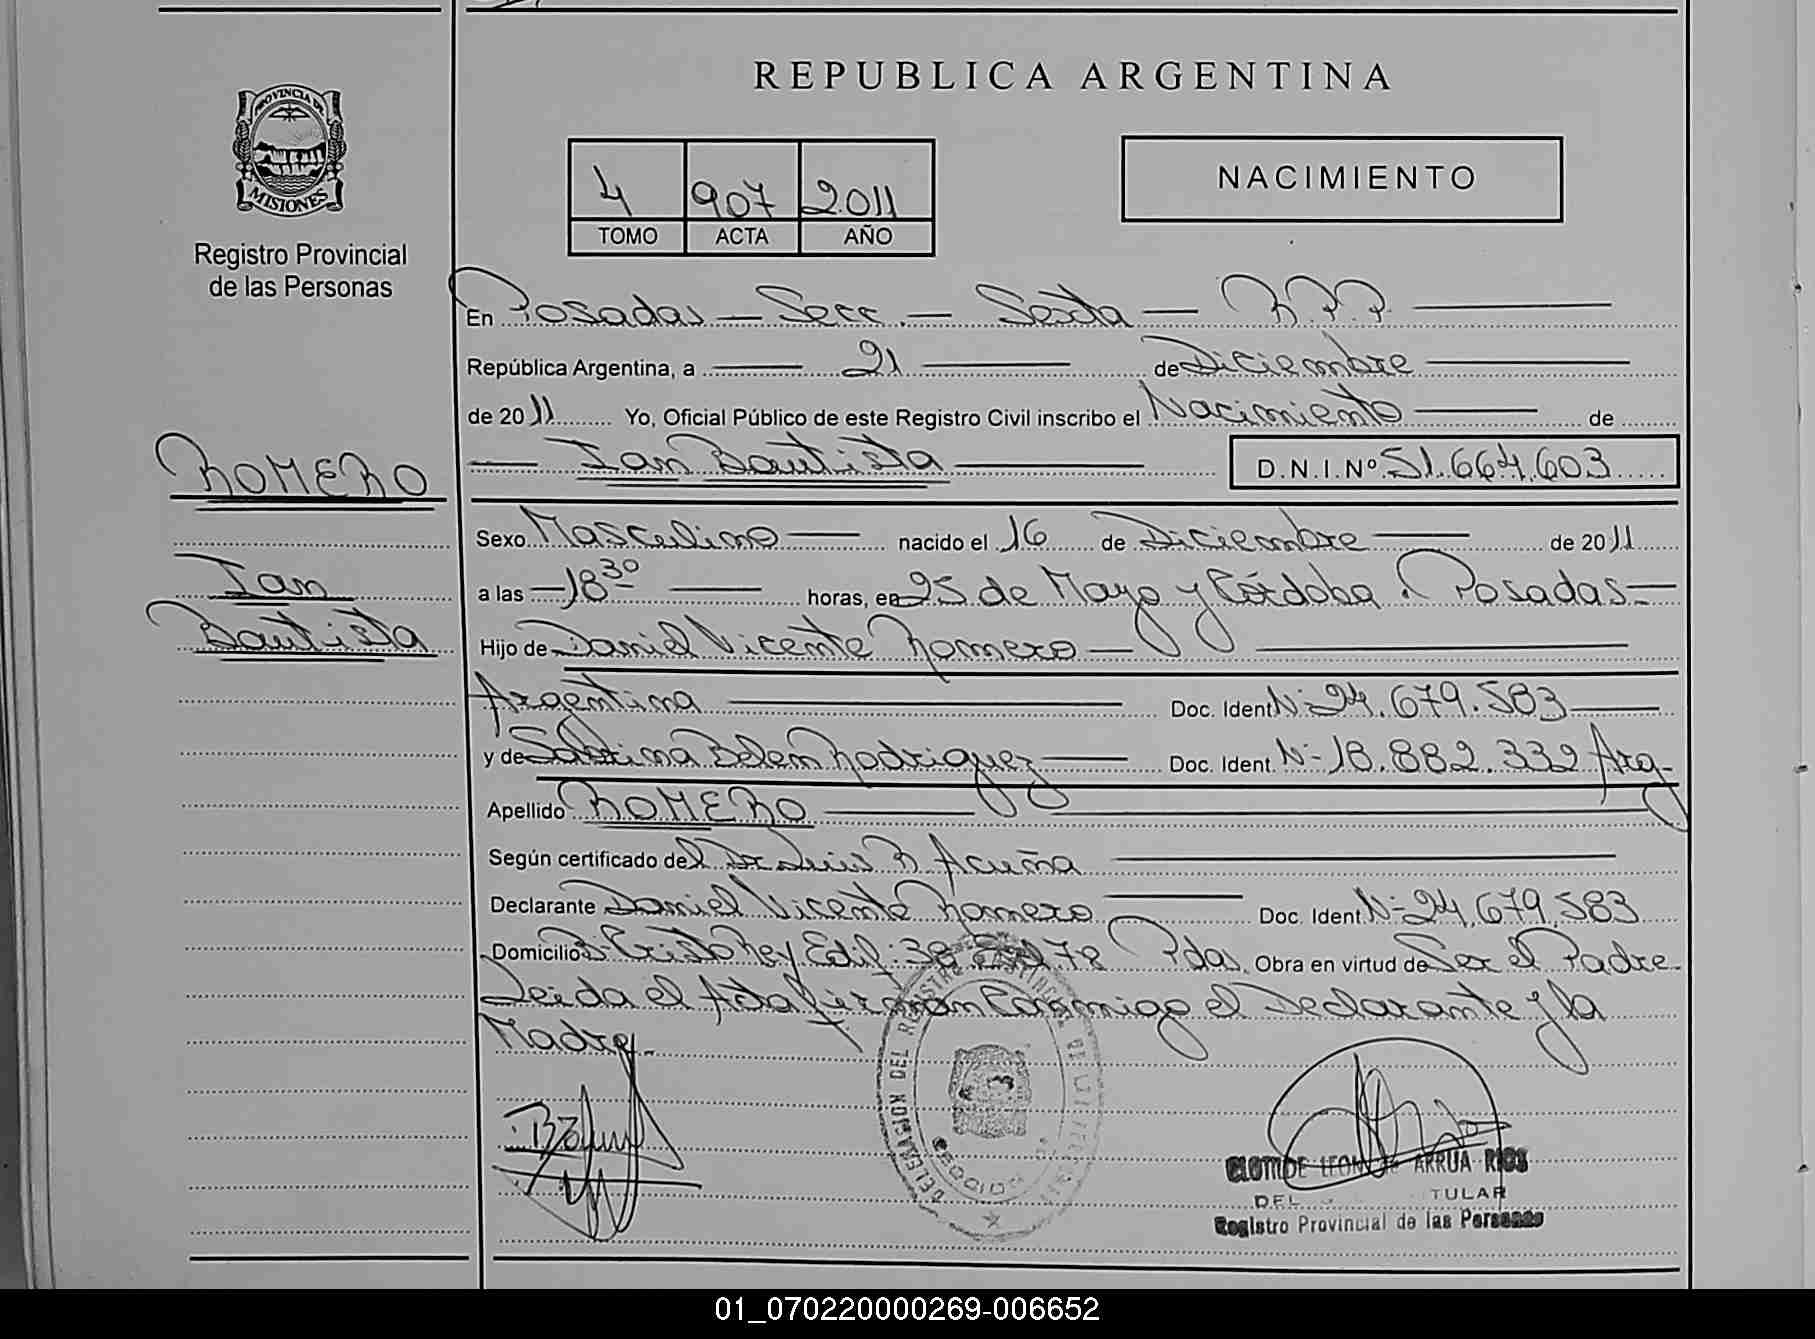 REPUBLICA ARGENTINA
PROVINCIA DE
MISIONES
Registro Provincial
de las Personas
4 907 2011
TOMO ACTA AÑO
NACIMIENTO
En Posadas — Secc. — Sexta — R.P.P.
República Argentina, a 21 de Diciembre
de 2011 Yo, Oficial Público de este Registro Civil inscribo el Nacimiento de
Ian Bautista D.N.I.Nº 51.664.603
ROMERO
Ian
Bautista
Sexo Masculino nacido el 16 de Diciembre de 2011
a las 18 30 horas, en 25 de Mayo y Córdoba. Posadas
Hijo de Daniel Vicente Romero
Argentina Doc. Ident. Nº 24.679.583
y de Sabrina Belem Rodriguez Doc. Ident. Nº 18.882.332 Arg.
Apellido ROMERO
Según certificado del Dr Luis R Acuña
Declarante Daniel Vicente Romero Doc. Ident. Nº 24.679.583
Domicilio Bº Cristo Rey Edif: 38 78 Pdas. Obra en virtud de Ser el Padre.
Leida el Acta firman Conmigo el Declarante y la
Madre.
DELEGACION DEL REGISTRO PROVINCIAL DE LAS PERSONAS
SECCION
CLOTILDE LEON ARRUA RIOS
DEL TITULAR
Registro Provincial de las Personas
01_070220000269-006652